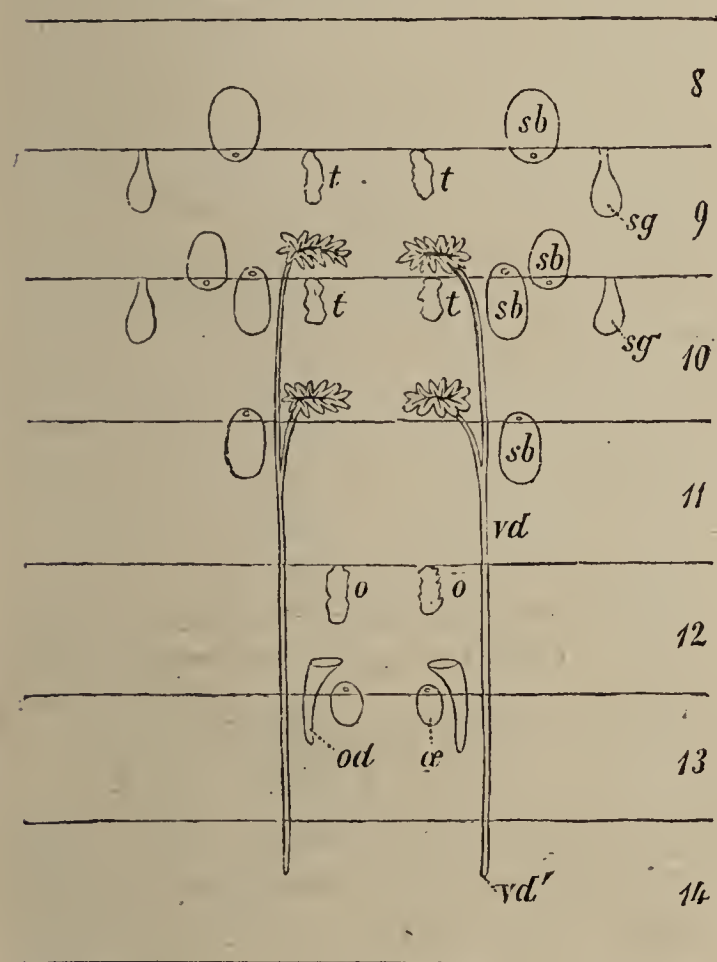 8
sb
t t
sg 9
sb
t t sb
sg 10
sb
11
vd
o o
12
od œ
13
vd' 14